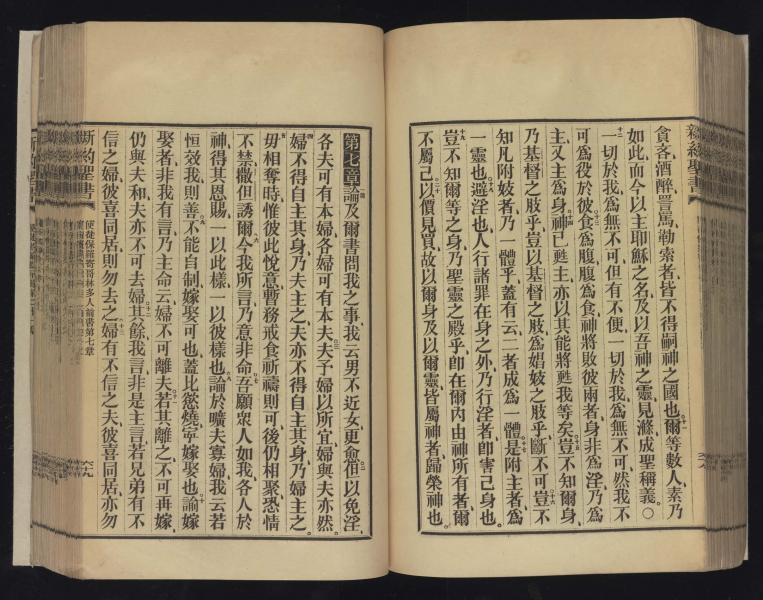 新約聖書
貪吝酒醉詈罵勒索者皆不得嗣神之國也爾等數人素乃
如此而今以主耶穌之名及以吾神之靈見滌成聖稱義〇
一切於我爲無不可但有不便一切於我爲無不可然我不
可爲役於彼食爲腹腹爲食神將敗彼兩者身非爲淫乃爲
主又主爲身神已甦主亦以其能將甦我等矣豈不知爾身
乃基督之肢乎豈以基督之肢爲娼妓之肢乎斷不可豈不
知凡附妓者乃一體乎蓋有云二者成爲一體是附主者爲
一靈也避淫也人行諸罪在身之外乃行淫者卽害己身也
豈不知爾等之身乃聖靈之殿乎卽在爾內由神所有者爾
不屬己以價見買故以爾身及以爾靈皆屬神者歸榮神也
第七章論及爾書問我之事我云男不近女更愈但以免淫
各夫可有本婦各婦可有本夫夫予婦以所宜婦與夫亦然
婦不得自主其身乃夫主之夫亦不得自主其身乃婦主之
毋相奪時惟彼此悅意暫務戒食祈禱則可後仍相聚恐情
不禁撒但誘爾今我所言乃意非命吾願衆人如我各人於
神得其恩賜一以此樣一以彼樣也論於曠夫寡婦我云若
恒效我則善不能自制嫁娶可也蓋比慾燒寧嫁娶也諭嫁
娶者非我有言乃主命云婦不可離夫若其離之不可再嫁
仍與夫和夫亦不可去婦其餘我言非是主言若兄弟有不
信之婦彼喜同居則勿去之婦有不信之夫彼喜同居亦勿
新約聖書
使徒保羅寄哥林多人前書第七章
六十九